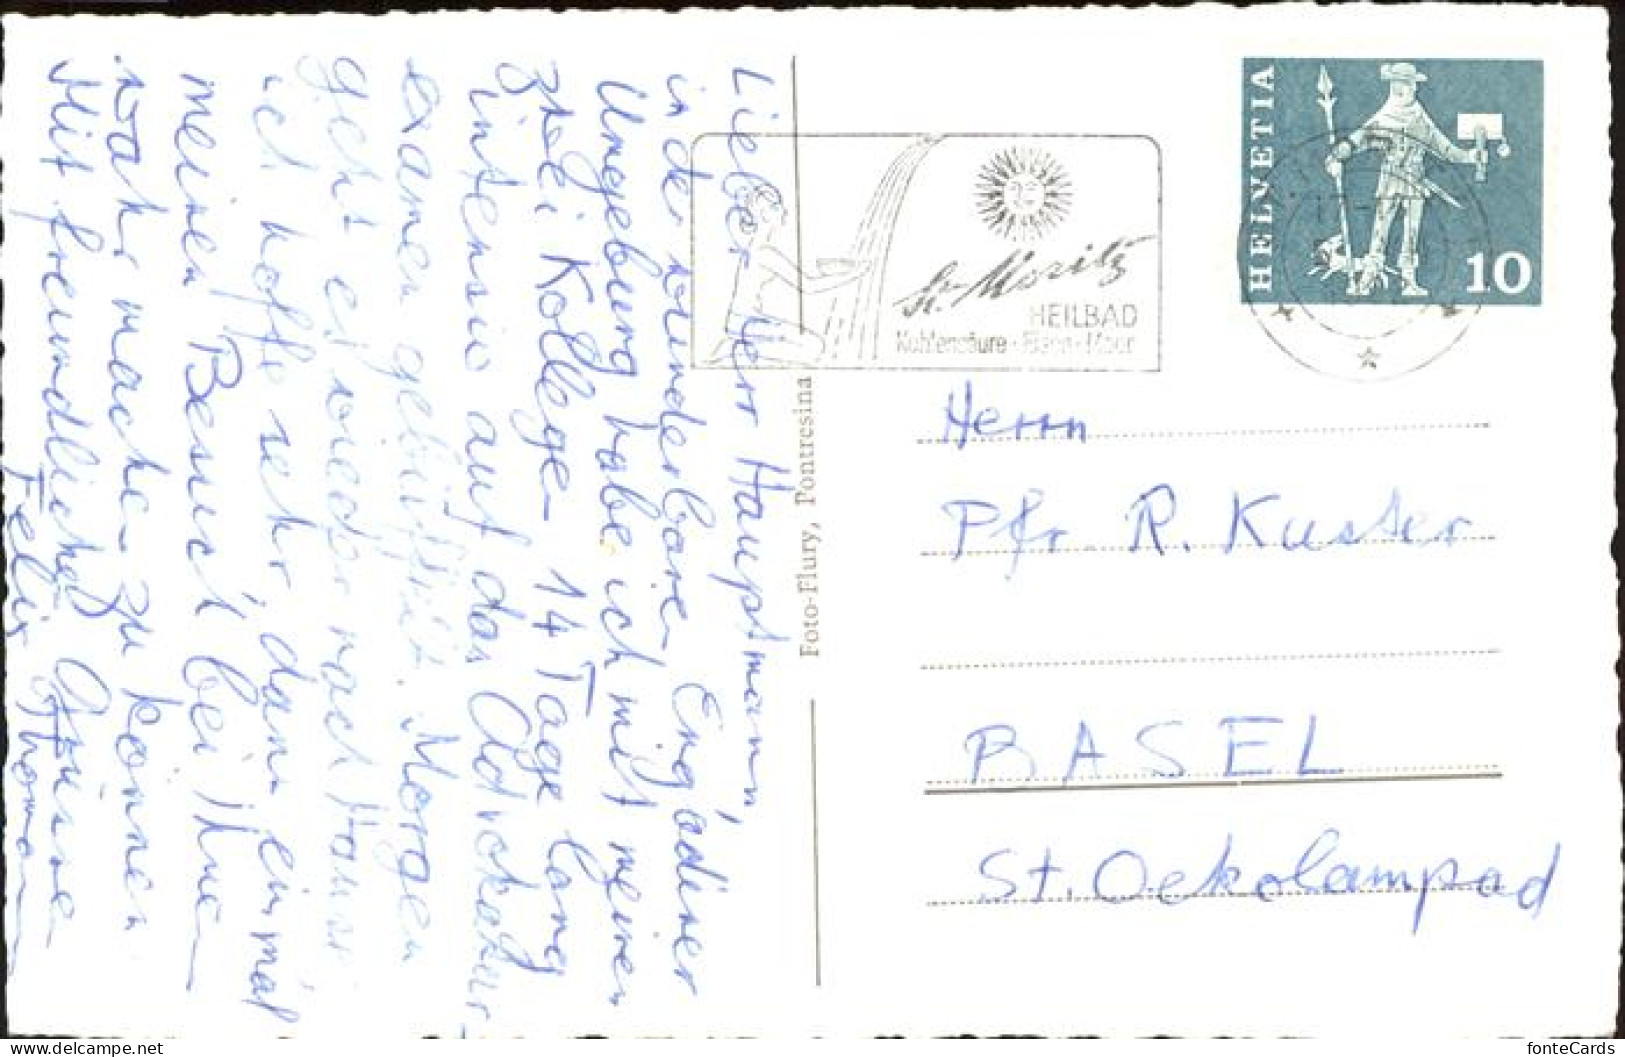 Lieber Herr Hauptmann,
in der wunderbaren Engadiner
Umgebung habe ich mit meinen
zwei Kollegen 14 Tage lang
intensiv auf das
examen gebüffelt. Morgen
geht es wieder nach Hause
ich hoffe sehr, dann einmal
meinen Besuch bei Ihnen
wahr machen zu können
Mit freundlichen Grüssen
Felix Thoman
Foto-Flury, Pontresina
St. Moritz
HEILBAD
Kohlensäure-Eisen-Moor
HELVETIA
10
Herrn
Pfr. R. Kuster
BASEL
St. Oekolampad
fonteCards
www.delcampe.net